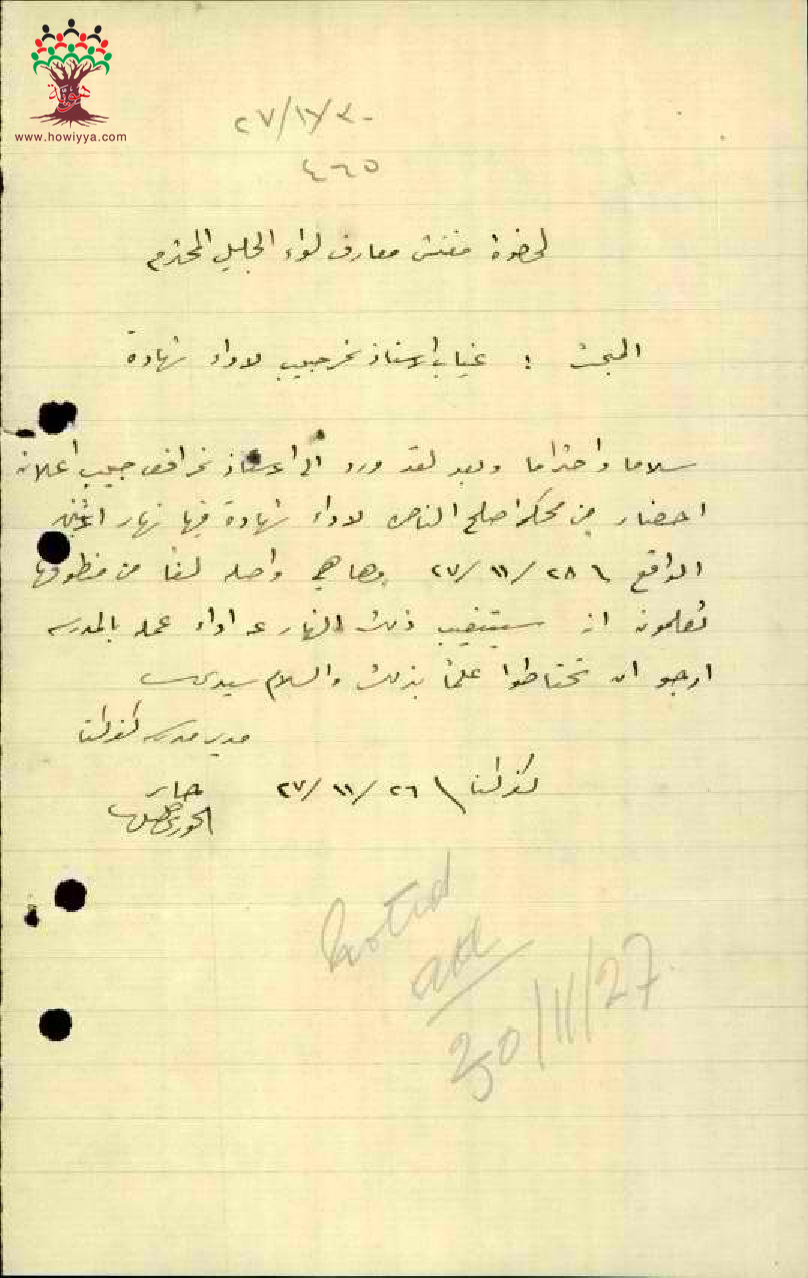 هوية
www.howiyya.com
٢٧/١١/٣٠
٤٦٥
لحضرة مفتش معارف لواء الجليل المحترم
المبحث : غياب الاستاذ نمر حبيب لاداء شهادة
سلاما واحتراما وبعد لقد ورد الى الاستاذ نمر حبيب اعلان
احضار من محكمة صلح الناصرة لاداء شهادة فيها نهار الاثنين
الواقع ٢٨/١١/٢٧ وها هي واصله لفاً من منطوقها
تعلمون انه سيتغيب ذلك النهار عن اداء عمله بالمدرسه
ارجو ان تحتاطوا علماً بذلك والسلام سيدي
مدير مدرسه كفركنا
كفركنا \ ٢٦/١١/٢٧
جابر
الخوري
Noted
30/11/27.